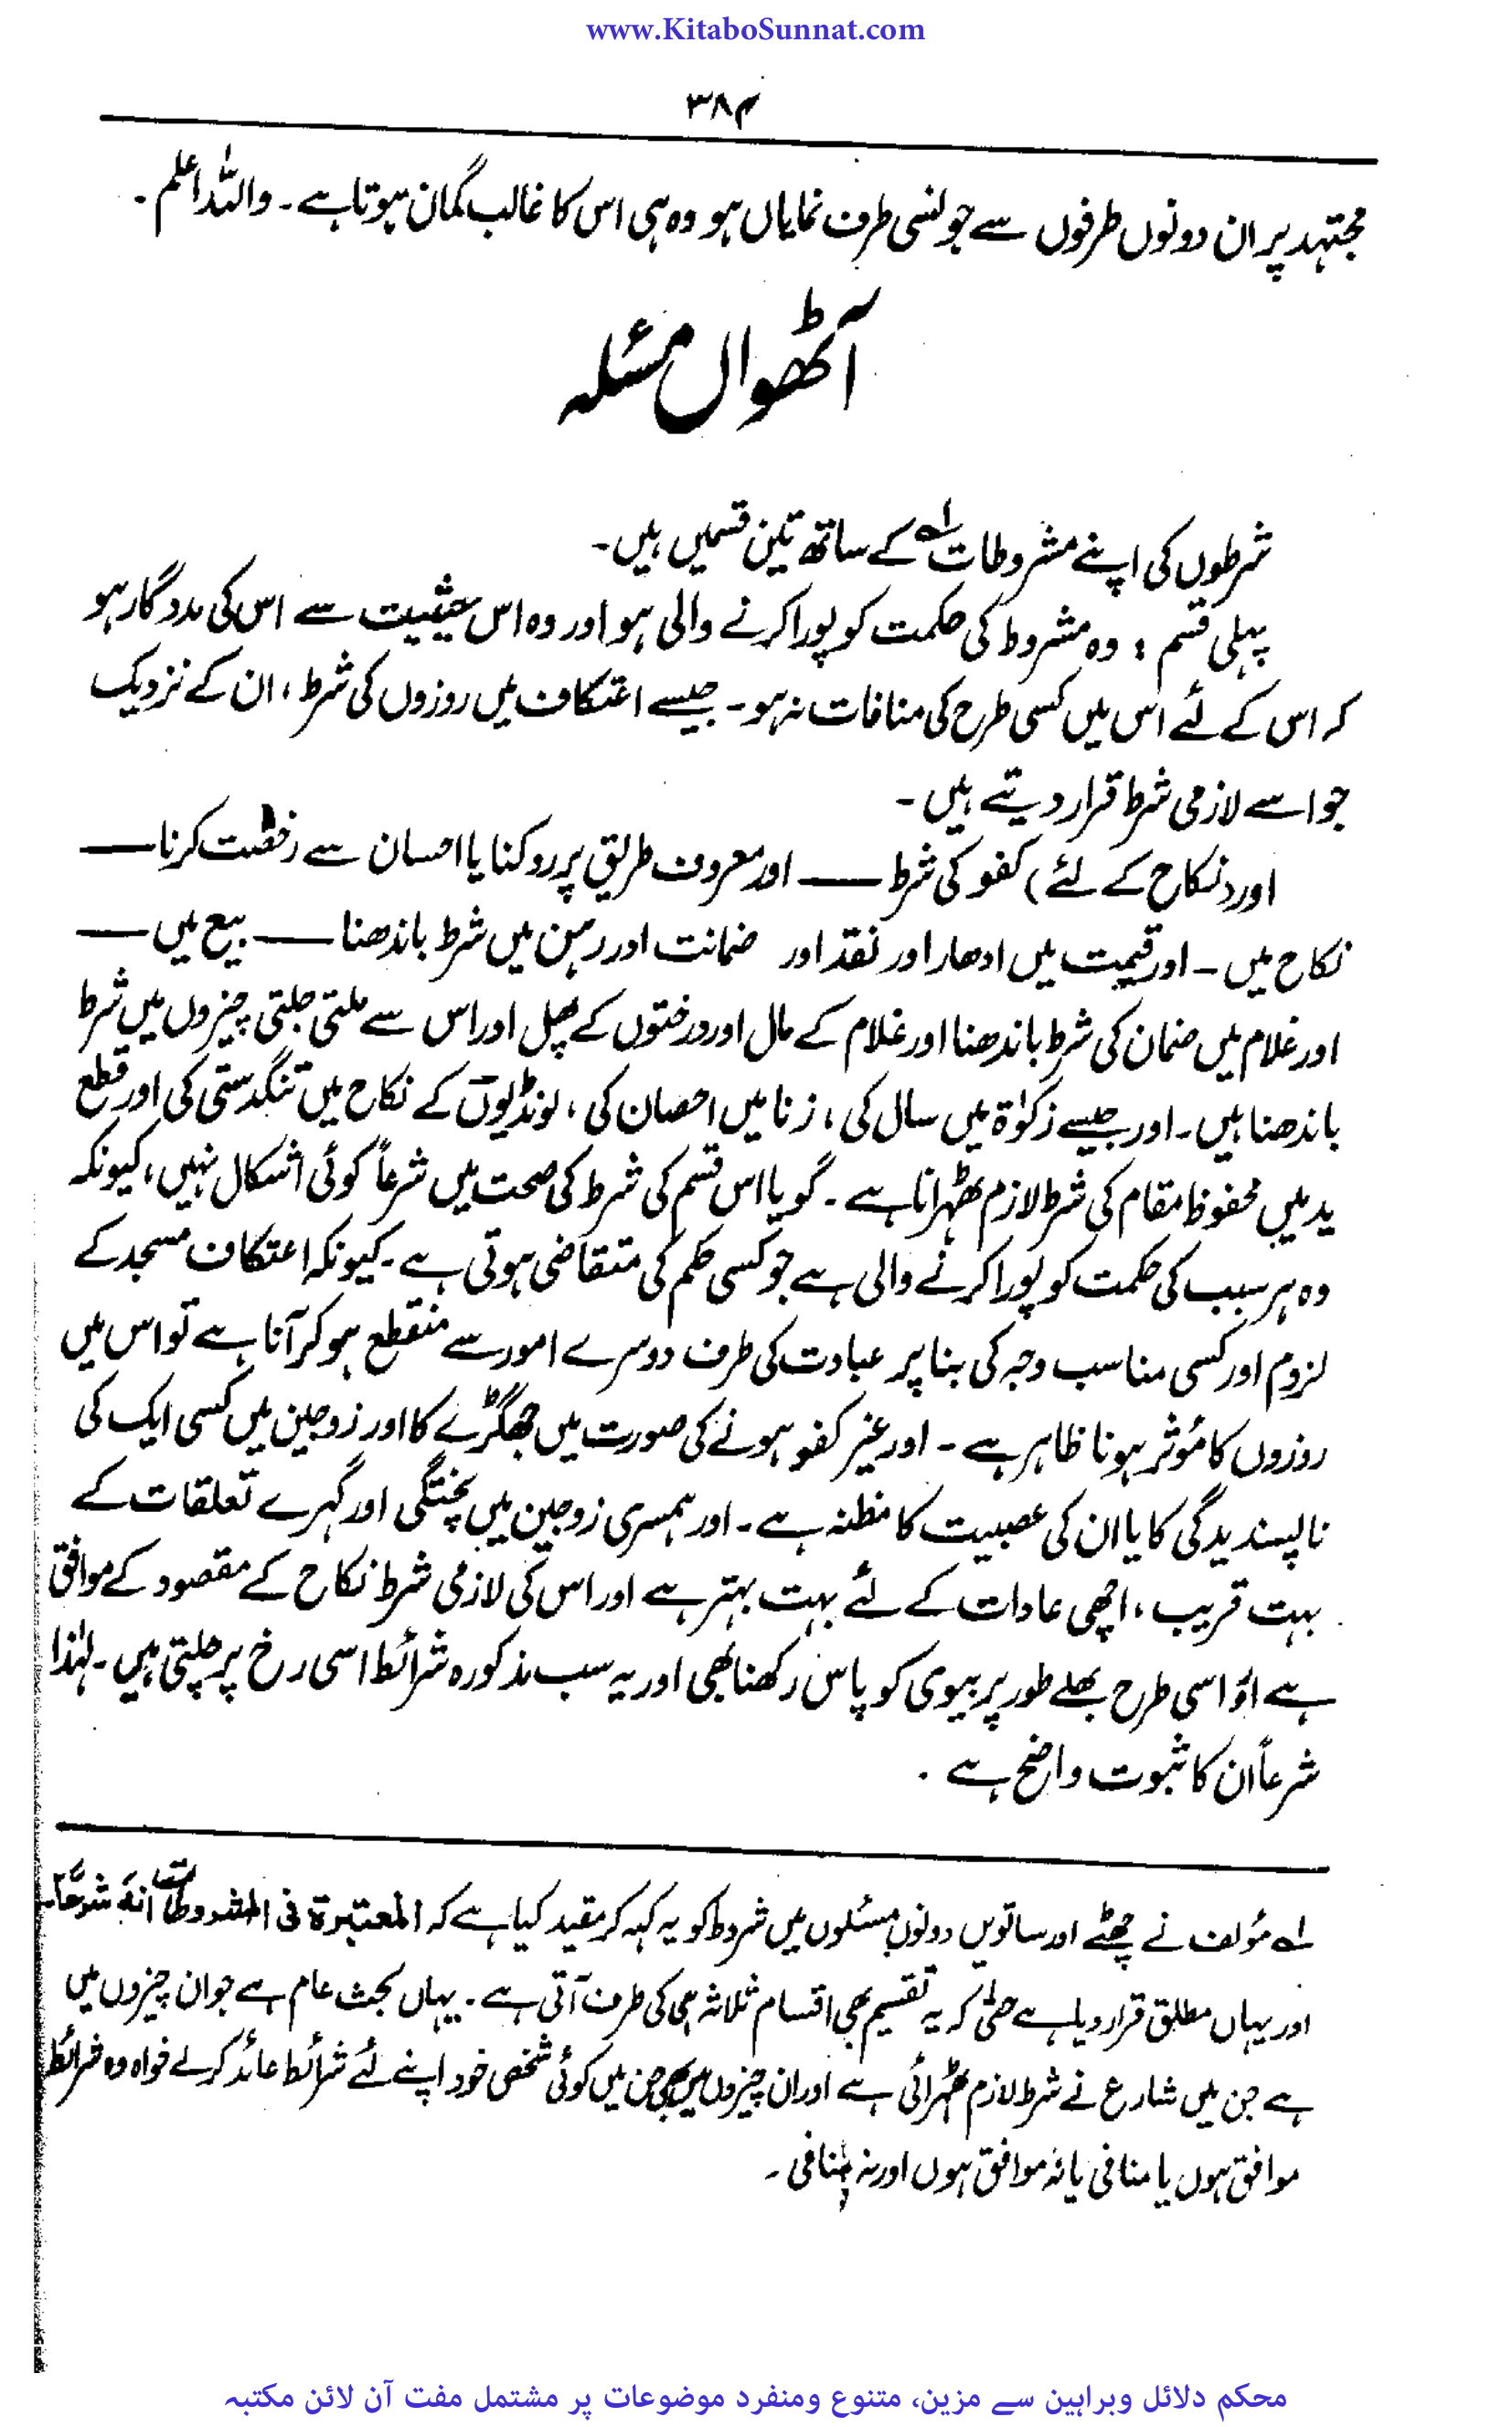 www.KitaboSunnat.com
۳۸۴
مجتہد پر ان دونوں طرفوں سے جونسی طرف نمایاں ہو وہ ہی اس کا غالب گمان ہوتا ہے۔ واللہ اعلم۔
آٹھواں مسئلہ
شرطوں کی اپنے مشروطات لہ کے ساتھ تین قسمیں ہیں۔
پہلی قسم : وہ مشروط کی حکمت کو پورا کرنے والی ہو اور وہ اس حیثیت سے اس کی مددگار ہو
کہ اس کے لئے اس میں کسی طرح کی منافات نہ ہو۔ جیسے اعتکاف میں روزوں کی شرط، ان کے نزدیک
جو اسے لازمی شرط قرار دیتے ہیں۔
اور (نکاح کے لئے) کفو کی شرط —— اور معروف طریق پر روکنا یا احسان سے رخصت کرنا ——
نکاح میں۔ اور قیمت میں ادھار اور نقد اور ضمانت اور رہن میں شرط باندھنا —— بیع میں ——
اور غلام میں ضمان کی شرط باندھنا اور غلام کے مال اور درختوں کے پھل اور اس سے ملتی جلتی چیزوں میں شرط
باندھنا ہیں۔ اور جیسے زکوٰۃ میں سال کی، زنا میں احصان کی، لونڈیوں کے نکاح میں تنگدستی کی اور قطع
ید میں محفوظ مقام کی شرط لازم ٹھہرانا ہے۔ گویا اس قسم کی شرط کی صحت میں شرعاً کوئی اشکال نہیں، کیونکہ
وہ ہر سبب کی حکمت کو پورا کرنے والی ہے جو کسی حکم کی متقاضی ہوتی ہے۔ کیونکہ اعتکاف مسجد کے
لزوم اور کسی مناسب وجہ کی بنا پر عبادت کی طرف دوسرے امور سے منقطع ہو کر آنا ہے تو اس میں
روزوں کا مؤثر ہونا ظاہر ہے۔ اور غیر کفو ہونے کی صورت میں جھگڑے کا اور زوجین میں کسی ایک کی
ناپسندیدگی کا یا ان کی عصبیت کا مظنہ ہے۔ اور ہمسری زوجین میں پختگی اور گہرے تعلقات کے
بہت قریب، اچھی عادات کے لئے بہت بہتر ہے اور اس کی لازمی شرط نکاح کے مقصود کے موافق
ہے اؤ اسی طرح بھلے طور پر بیوی کو پاس رکھنا بھی اور یہ سب مذکورہ شرائط اسی رخ پر چلتی ہیں۔ لہٰذا
شرعاً ان کا ثبوت واضح ہے .
لہ مؤلف نے چھٹے اور ساتویں دونوں مسئلوں میں شروط کو یہ کہہ کر مقید کیا ہے کہ المعتبرة فی المشروطات
اور یہاں مطلق قرار دیا ہے حتٰی کہ یہ تقسیم بھی اقسام ثلاثہ ہی کی طرف آتی ہے۔ یہاں بحث عام ہے جو ان چیزوں میں
ہے جن میں شارع نے شرط لازم ٹھہرائی ہے اور ان چیزوں میں بھی جن میں کوئی شخص خود اپنے لئے شرائط عائد کرلے خواہ وہ شرائط
موافق ہوں یا منافی یا نہ موافق ہوں اور نہ منافی۔
محکم دلائل وبراہین سے مزین، متنوع ومنفرد موضوعات پر مشتمل مفت آن لائن مکتبہ